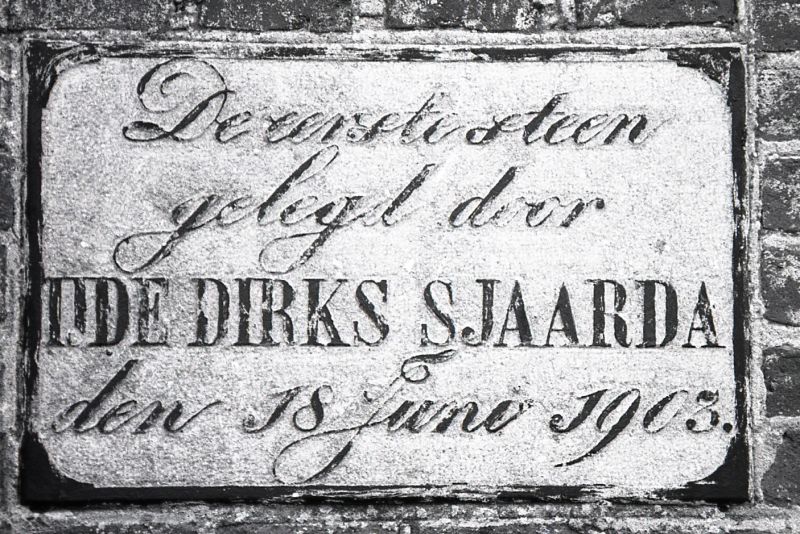 De eerste steen
gelegd door
IJDE DIRKS SJAARDA
den 18 Juni 1903.